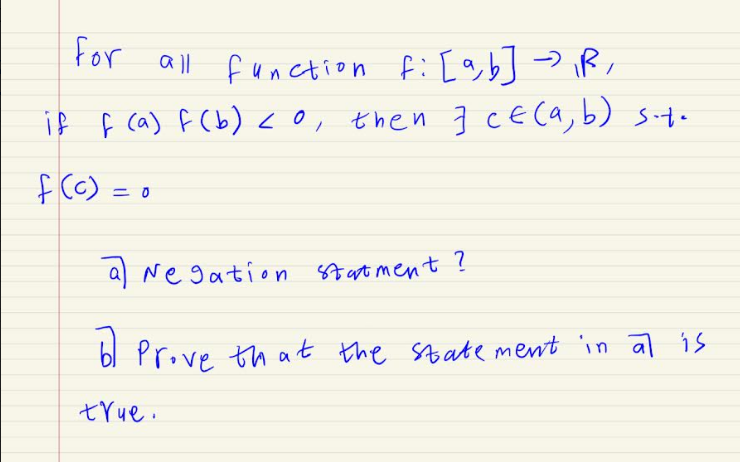 For all function f: [a,b] → ℝ,
if f(a) f(b) < 0, then ∃ c ∈ (a,b) s.t.
f(c) = 0
a) Negation statment?
b) Prove that the statement in a) is
true.